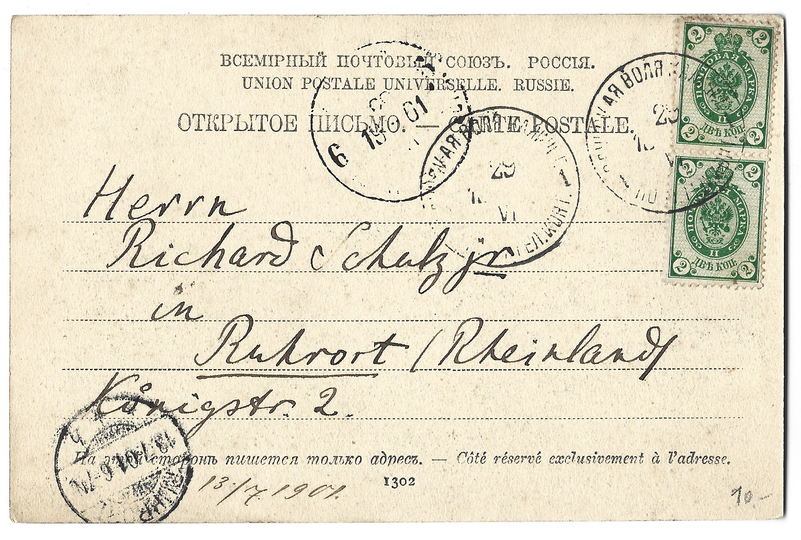 ВСЕМІРНЫЙ ПОЧТОВЫЙ СОЮЗЪ. РОССІЯ.
UNION POSTALE UNIVERSELLE. RUSSIE.
ОТКРЫТОЕ ПИСЬМО. — CARTE POSTALE.
6
1901
29
VI
1
29
VI
2 2
ПОЧТОВАЯ МАРКА
II
ДВѢ КОП.
2 2
2 2
ПОЧТОВАЯ МАРКА
II
ДВѢ КОП.
2 2
Herrn
Richard Schulz jr
in
Ruhrort (Rheinland)
Königstr. 2.
На этой сторонѣ пишется только адресъ. — Côté réservé exclusivement à l'adresse.
1302
13/7 1901.
10.-